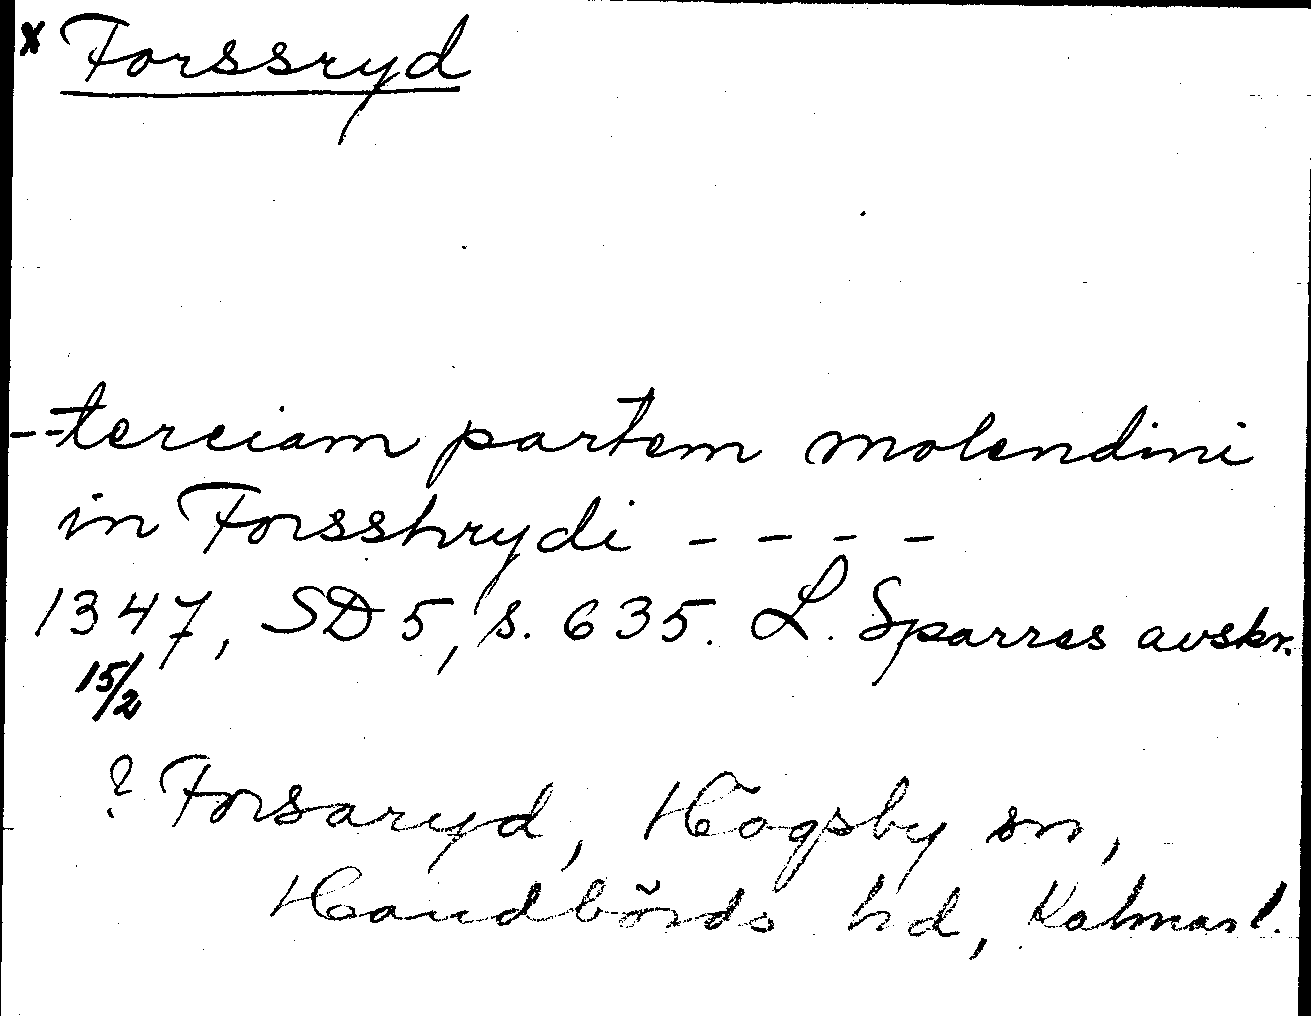 x Forssryd
--terciam partem molendini
in Forsshrydi ----
1347, SD 5, s. 635. L. Sparres avskr.
15/2
? Forsaryd, Högsby sn,
Handbörds hd, Kalmar l.